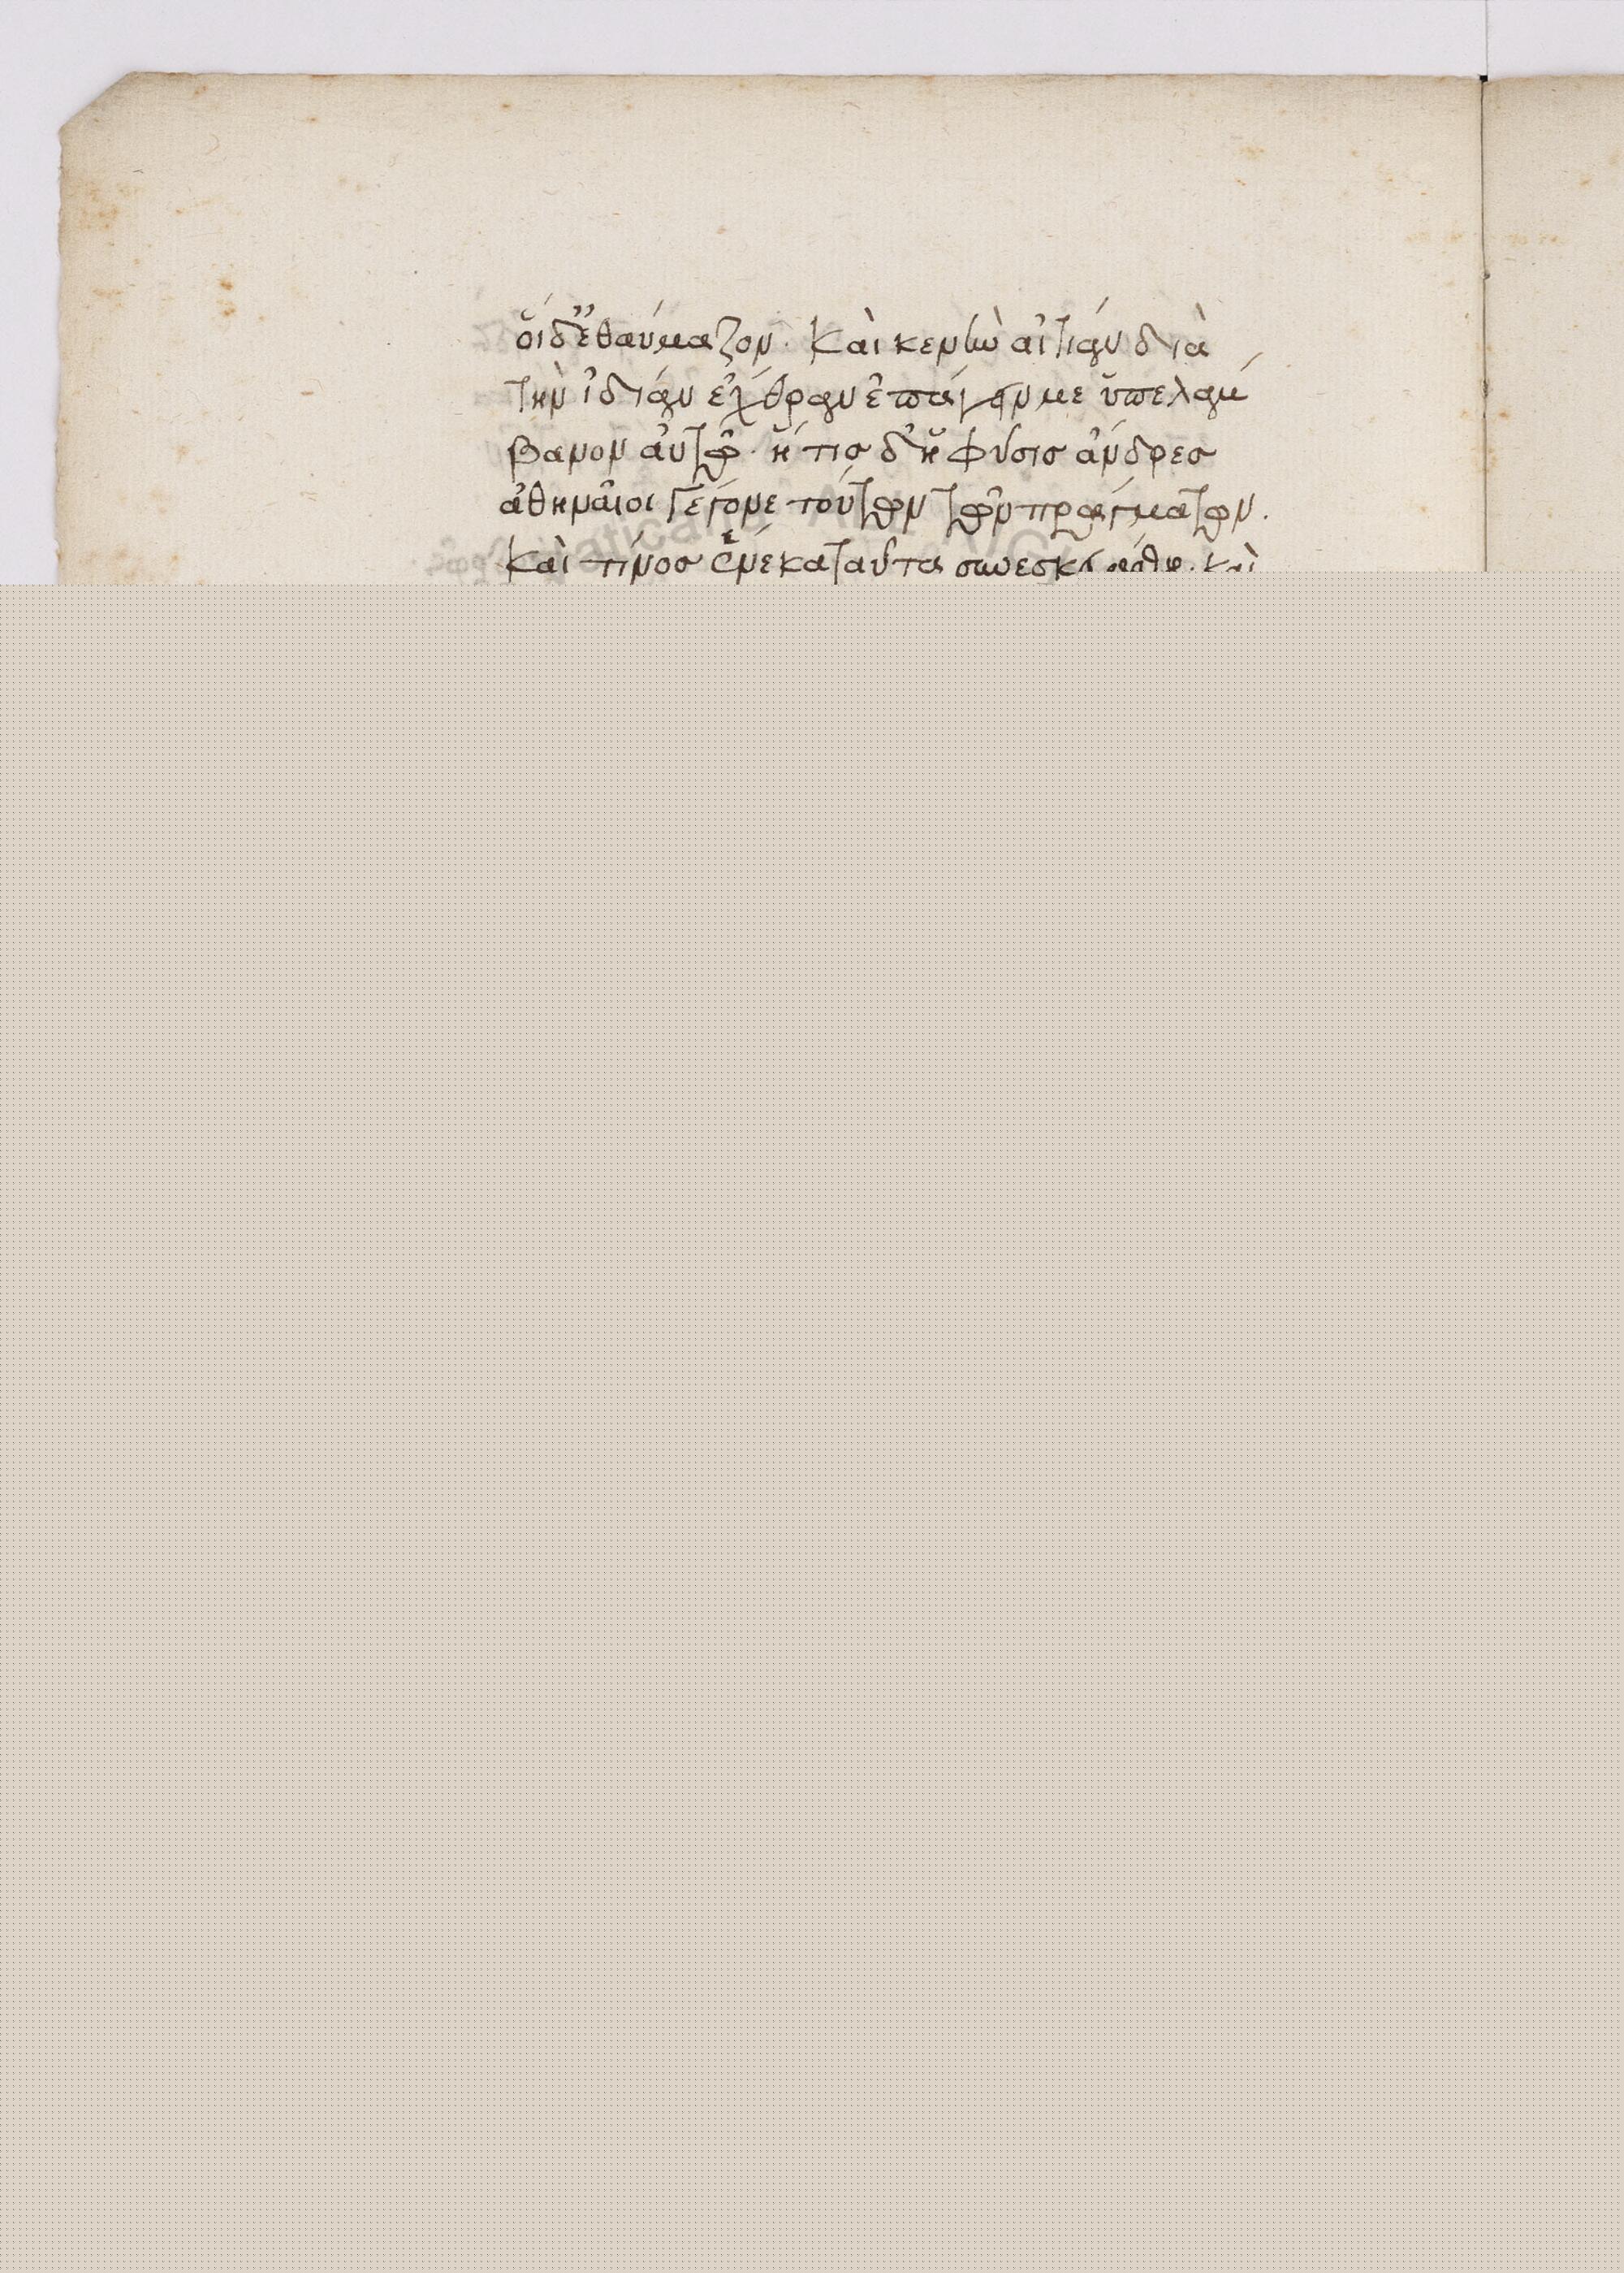 οἱ δ' ἐθαύμαζον. καὶ κενὴν αἰτίαν διὰ
τὴν ἰδίαν ἔχθραν ἐπάγειν με ὑπελάμ
βανον αὐτῶ. ἥ τις δ' ἡ φύσις ἄνδρες
ἀθηναῖοι γέγονε τούτων τῶν πραγμάτων.
καὶ τίνος ἕνεκα ταῦτα συνεσκευάσθη. καὶ